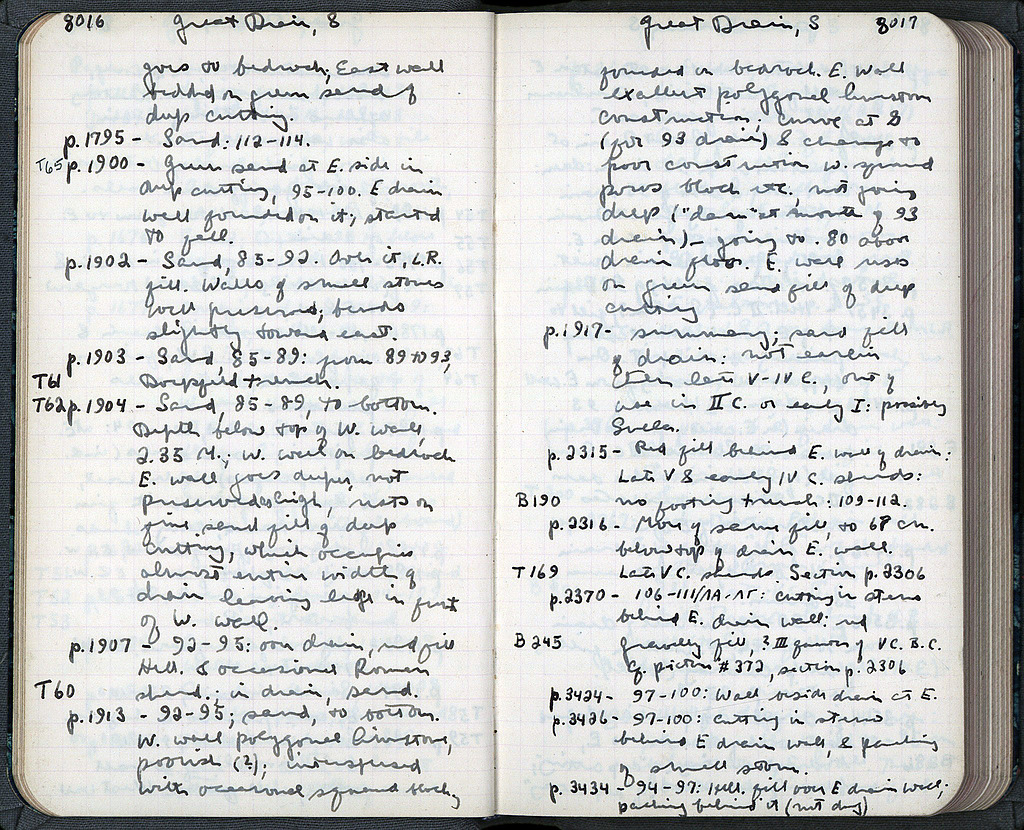 8016 Great Drain, S
goes to bedrock; East wall
bedded on green sand of
deep cutting.
p.1795 - Sand: 112-114.
T65 p.1900 - Green sand at E. side in
deep cutting, 95-100. E drain
wall founded on it; started
to fall.
p.1902 - Sand, 85-92. Over it, L.R.
fill. Walls of small stones
well preserved; bends
slightly toward east.
p.1903 - Sand, 85-89: from 89 to 93,
T61 Doerpfeld trench.
T62 p.1904 - Sand, 85-89, to bottom.
Depth below top of W. wall,
2.35 M.; W. wall on bedrock
E. wall goes deeper, not
preserved as high, rests on
fine sand fill of deep
cutting, which occupies
almost entire width of
drain leaving ledge in front
of W. wall.
p.1907 - 92-95: over drain, red fill
Hell. & occasional Roman
T60 sherd.; in drain, sand.
p.1913 - 92-95; sand, to bottom.
W. wall polygonal limestone,
poorish (?); interspersed
with occasional squared blocks,
Great Drain, S 8017
founded in bedrock. E. wall
excellent polygonal limestone
construction; curve at S
(for 93 drain) & change to
poor construction w. squared
poros block etc., not going
deep ("dam" at mouth of 93
drain) - going to .80 above
drain floor. E. wall rises
on green sand fill of deep
cutting
p.1917 - summary, sand fill
of drain: not earlier
than late V-IV C., out of
use in II C. or early I: possibly
Sulla.
p.2315 - Red fill behind E. wall of drain:
Late V & early IV C. sherds:
B190 no footing trench: 109-112.
p.2316 - More of same fill, to 68 cm.
below top of drain E. wall.
T169 Late V C. sherds. Section p.2306
p.2370 - 106-111/ΛΑ-ΛΓ: cutting in stereo
behind E. drain wall: red
B245 gravelly fill, ? III quarter of V C. B.C.
Cf. picture #372, section p.2306.
p.3424 - 97-100: Wall beside drain at E.
p.3426 - 97-100: cutting in stereo
behind E drain wall & packing
of small stones.
p.3434 - 94-97: Hell. fill over E drain wall;
packing behind it (not dug)